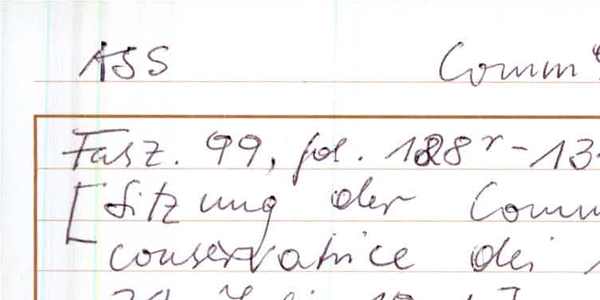 ASS Comm
Fasz. 99, fol. 128r - 13
[Sitzung der Comm
conservatrice dei